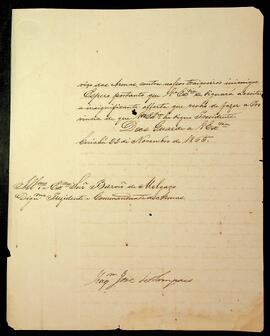 viço das Armas contra nossos traiçoeiros inimigos
Espero portanto que V. Exª se dignará aceitar
a insignificante offerta que venho de fazer a Pro-
vincia de que V. Exª he digno Presidente
Deos Guarde a V. Exª
Cuiabá 23 de Novembro de 1865.
Illmo e Exmo Snr Barão de Melgaço
Dignmo Presidente e Commandante das Armas.
José